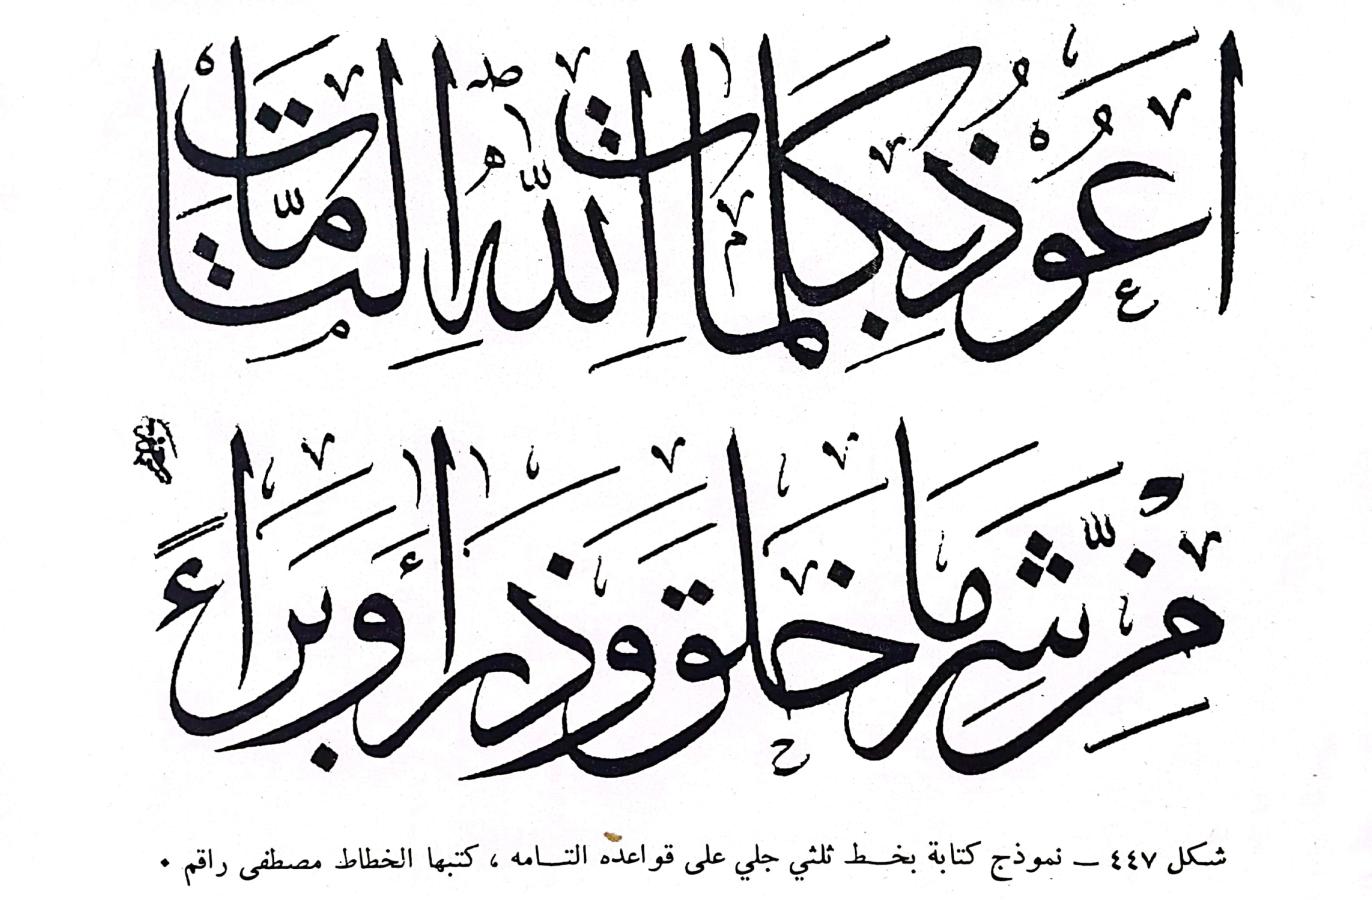 اعُوذُ بِكلمات اللهِ التامّات
مِن شَرِّ ما خلق وذرأ وبراءً
شكل ٤٤٧ — نموذج كتابة بخط ثلثي جلي على قواعده التامه ، كتبها الخطاط مصطفى راقم .